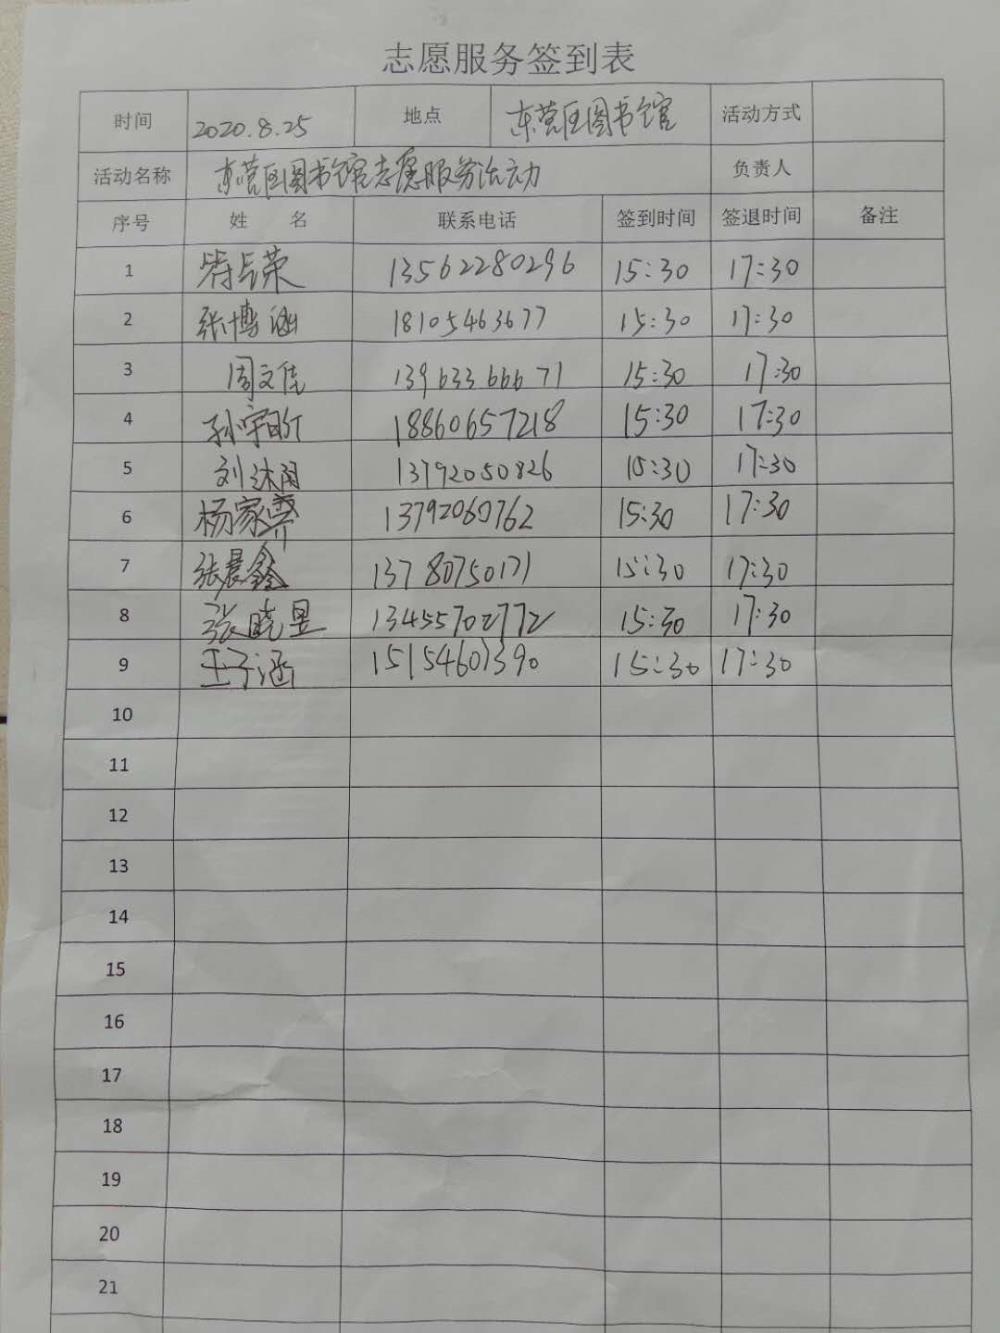 志愿服务签到表
时间 2020.8.25 地点 东营区图书馆 活动方式
活动名称 东营区图书馆志愿服务活动 负责人
序号 姓 名 联系电话 签到时间 签退时间 备注
1 荣 13562280296 15:30 17:30
2 张博涵 18105463677 15:30 17:30
3 周文佳 13963366671 15:30 17:30
4 孙宇昕 18860657218 15:30 17:30
5 刘沐阳 13792050826 15:30 17:30
6 杨家霁 13792060762 15:30 17:30
7 张晨鑫 13780750171 15:30 17:30
8 张晓昱 13455702772 15:30 17:30
9 王子涵 15154601390 15:30 17:30
10
11
12
13
14
15
16
17
18
19
20
21